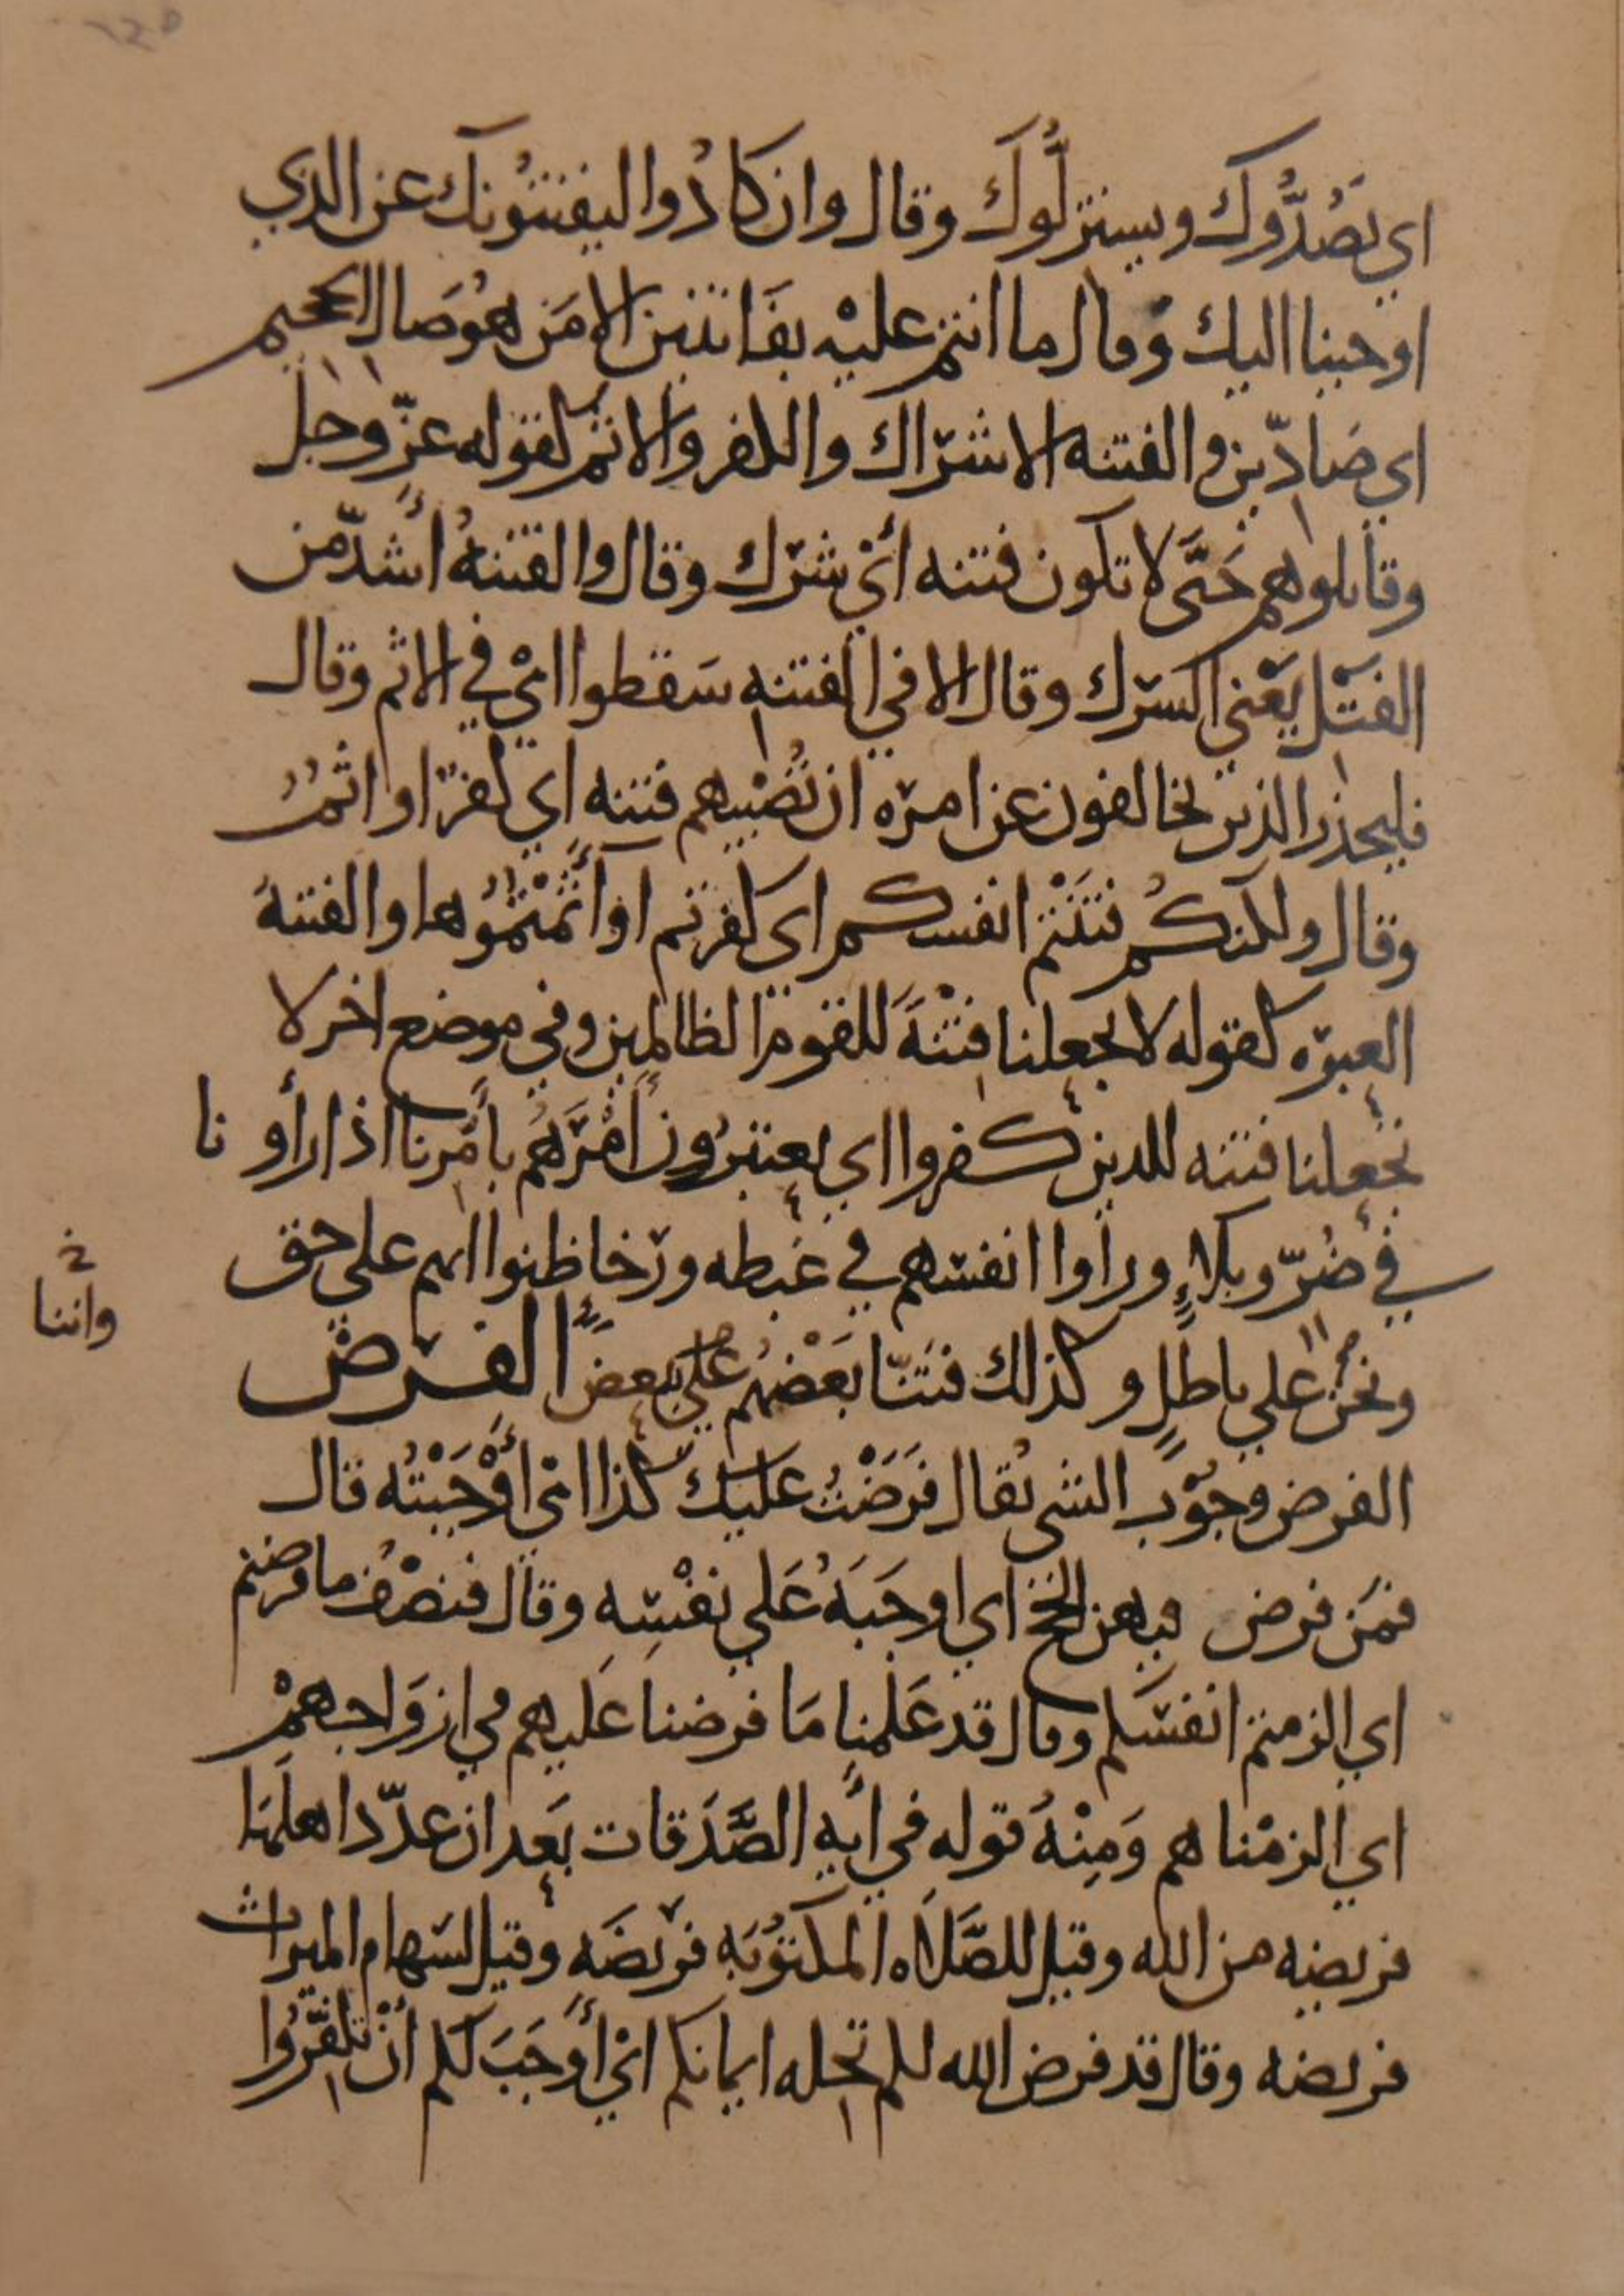 اي يَصُدُّوك ويستزلُّوكَ وقال وان كادُوا ليفتنُونكَ عن الذي
اوحينا اليك وقال ما انتم عليْه بفَاتنين الا مَن هوُ صَال الجحيم
اي صَادّين والفتنه الاشرْاك والكفر والاثم كقوله عزّ وجل
وقاتلوهم حَتَّى لا تكون فتنه أيْ شرْك وقال والفتنهُ أشدّ من
القتْل يعْني الشرْك وقال الا في الفتنه سَقطوا ايْ في الاثم وقال
فليحذر الذين يخالفون عن امره ان تُصْيبهم فتنه اي كفرٌ او اثمٌ
وقال ولكنكمُ فتَنْتم انفسكم اى كفرتم او آثمْتمُوها والفتنهَ
العبرْه كقوله لا تجعلنا فتْنهً للقوم الظالمين وفي موضع اخر لا
تجعلنا فتنه للذين كفروا اي يعتبرُون أمْرَهُم بأمْرنا اذا رأونا
في ضُرّ وبلاءٍ وراوا انفسَهم في غبطه ورخا ظنوا انهم على حق
ونحْن علي باطلٍ وكذلك فتنَّا بَعْضهُم علي بعض الفرْض
الفرض وجُوْب الشي يُقال فرَضْتُ عليك كذا ايْ أوْجَبْتُه قال
فمَن فرض فيهن الحج اي اوجَبَهُ عَلي نفْسِه وقال فنصْفُ ما فرضتم
اي الزمتم انفسَكم وقال قد عَلمْنا مَا فرضنا عَليهم في ازوَاجهمْ
اي الزمْناهم وَمِنْهُ قوله في آيه الصَّدَقات بَعد ان عدّد اهلهَا
فريضه من الله وقيل للصَّلاه المكتوُبَه فريْضَه وقيل لسَهام الميراث
فريضه وقال قد فرض الله لكم تحله ايمانكم ايْ أوجَبَ لكم أنْ تكفّرُوا
وانبا